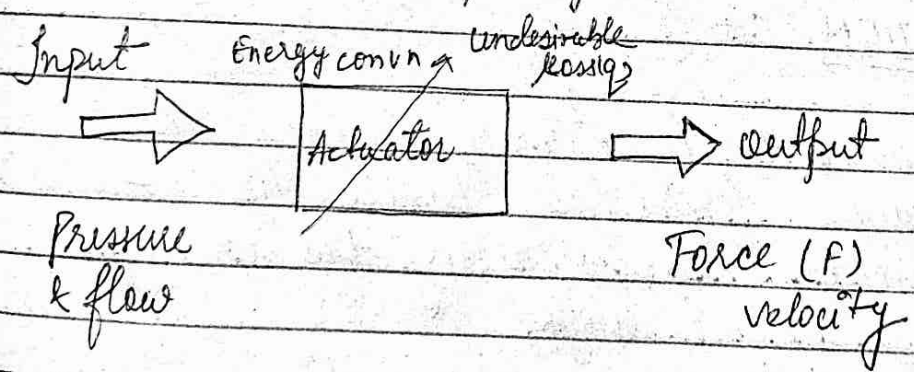 Input
Energy convn
undesirable
Actuator
output
Pressure
& flow
Force (F)
velocity